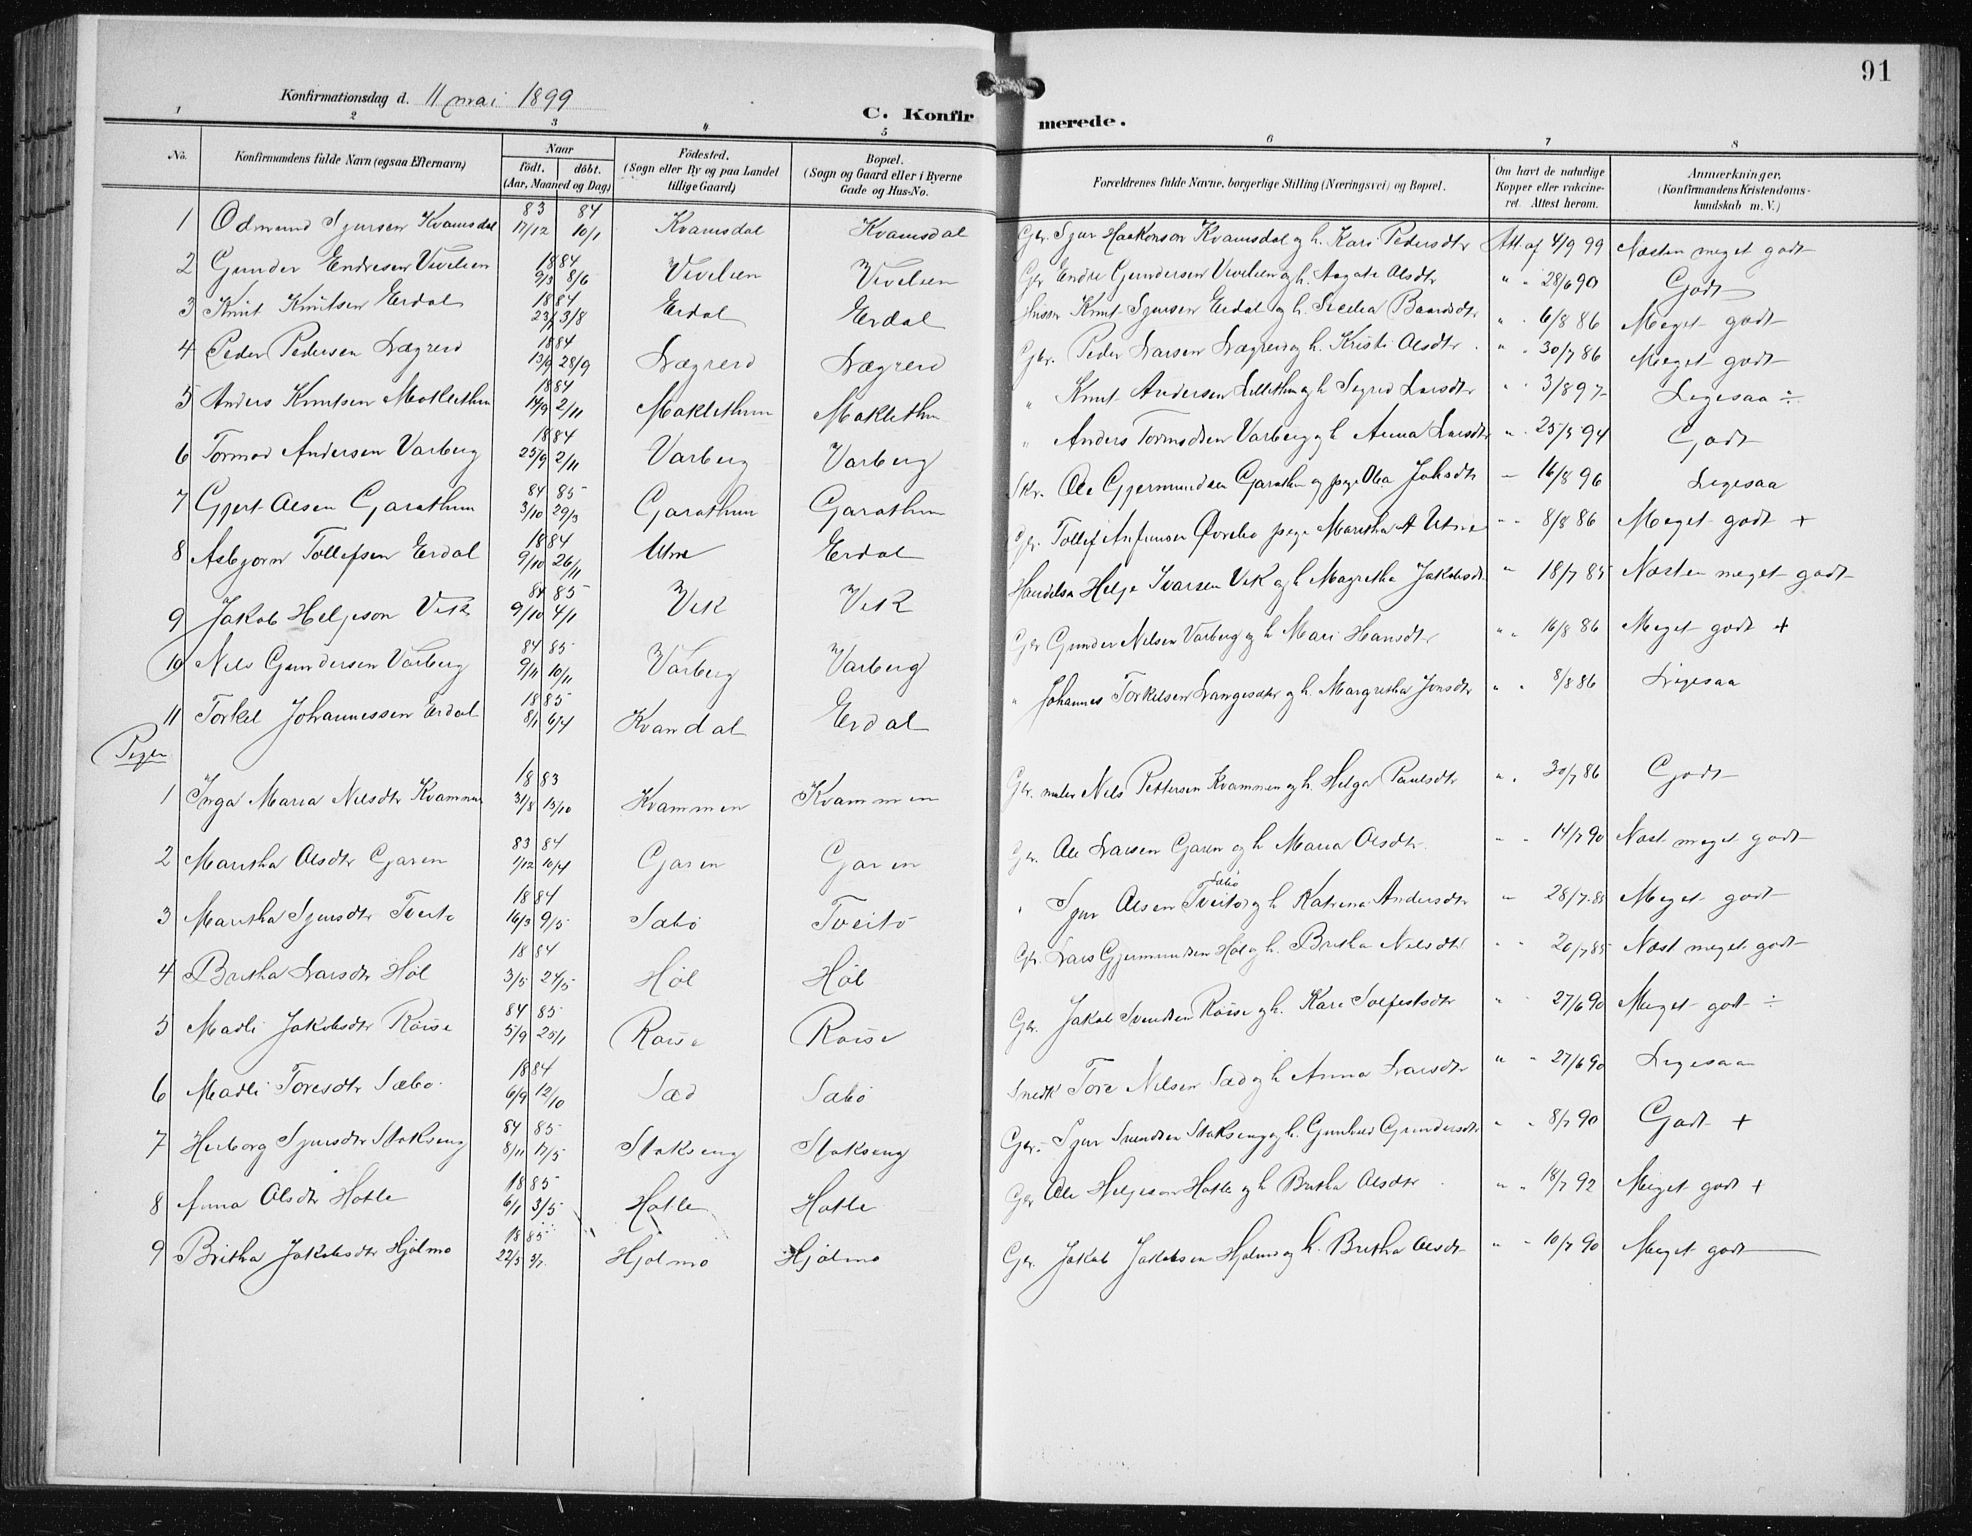 91
Konfirmationsdag d. 11 mai 1899
C. Konfirmerede.
1 2 3 4 5 6 7 8
No. Konfirmandens fulde Navn (ogsaa Efternavn) Naar født. døbt. (Aar, Maaned og Dag) Fødested. (Sogn eller By og paa Landet tillige Gaard) Bopæl. (Sogn og Gaard eller i Byerne Gade og Hus-No. Forældrenes fulde Navne, borgerlige Stilling (Næringsvei) og Bopæl. Om havt de naturlige Kopper eller vakcineret. Attest herom. Anmærkninger. (Konfirmandens Kristendomskundskab m. V.)
1 Odmund Sjursen Kvamsdal 83 17/12 84 10/1 Kvamsdal Kvamsdal Gbr. Sjur Haakonson Kvamsdal og h. Kari Pedersdtr Att. af 4/9 99 Næsten meget godt
2 Gunder Endresen Vivelien 1884 9/3 8/6 Vivelien Vivelien Gbr Endre Gundersen Vivelien og h. Aagate Olsdtr " " 28/6 90 Godt
3 Knut Knutsen Erdal 1884 23/7 3/8 Erdal Erdal Husm Knut Sjursen Erdal og h. Baardsdtr " . 6/8 86 Meget godt
4 Peder Pedersen Lægreid 1884 13/9 28/9 Lægreid Lægreid Gbr. Peder Larsen Lægreid og h. Kristi Olsdtr " . 30/7 86 Meget godt
5 Anders Knutsen Maklethun 1884 14/9 2/11 Maklethun Maklethun " Knut Andersen Lillethun og h Sigrid Larsdtr " " 3/8 97 Ligesaa ÷
6 Tormod Andersen Varberg 1884 25/9 2/11 Varberg Varberg " Anders Tormodsen Varberg og h Anna Larsdtr " . 25/8 94 Godt
7 Gjert Olsen Garathun 84 3/10 85 29/3 Garathun Garathun Ole Gjermundsen Garathun og pige Johsdtr — 16/8 96 Ligesaa
8 Asbjørn Tollefsen Erdal 1884 9/10 26/11 Utne Erdal Gbr. Tollef Anfinnsen Øvrebø pige Maritha A Utne " " 8/8 86 Meget godt +
9 Jakob Helgeson Vik 84 9/10 85 4/1 Vik Vik Handelsm Helge Ivarsen Vik og h Magretha Jakobsdt " 18/7 85 Næsten meget godt
10 Nils Gundersen Varberg 84 9/11 85 10/11 Varberg Varberg Gbr Gunder Nilsen Varberg og h Mari Hansdtr " " 16/8 86 Meget godt +
11 Torkel Johannessen Erdal 1885 8/1 6/4 Kvandal Erdal " Johannes Torkelsen og h. Margretha Jonsdtr " " 8/8 86 Ligesaa
Piger
1 Inga Maria Nilsdtr Kvammen 1883 31/8 13/10 Kvammen Kvammen Gbr. maler Nils Pettersen Kvammen og h. Helga Paulsdtr " . 30/7 86 Godt
2 Maritha Olsdtr Garen 83 1/12 84 10/4 Garen Garen Gbr. Ole Larsen Garen og h Maria Olsdtr. " " 14/7 90 Næst meget godt
3 Maritha Sjursdtr Tveito 1884 16/3 9/5 Sæbø Tveito " Sjur Olsen Tveito Sæbø og h Katrina Andersdtr " 28/7 85 Meget godt
4 Britha Larsdtr Høl 1884 3/5 24/5 Høl Høl Gbr. Lars Gjermundsen Høl og h. Britha Nilsdtr " " 20/7 85 Næst meget godt
5 Madli Jakobsdtr Røise 84 5/9 85 25/1 Røise Røise Gbr. Jakob Svendsen Røise og h. Kari Solfestsdtr " " 27/6 90 Meget godt ÷
6 Madli Toresdtr Sæbø. 1884 6/9 12/10 Sæd Sæbø Snedk Tore Nilsen Sæd og h Anna Larsdtr " " 27/6 90 Ligesaa
7 Herborg Sjursdtr Stokseng 84 8/11 85 17/5 Stokseng Stokseng Gbr. Sjur Svendsen Stokseng og h. Gunhild Gundersdt " " 8/7 90 Godt +
8 Anna Olsdtr Hotle 1885 6/1 3/5 Hotle Hotle Gbr Ole Helgeson Hotle og h Britha Olsdtr " " 18/7 92 Meget godt +
9 Britha Jakobsdtr Hjølmo 1885 22/5 5/7. Hjølmo Hjølmo Gbr. Jakob Jakobsen Hjølmo og h. Britha Olsdt " " 10/7 90 Meget godt